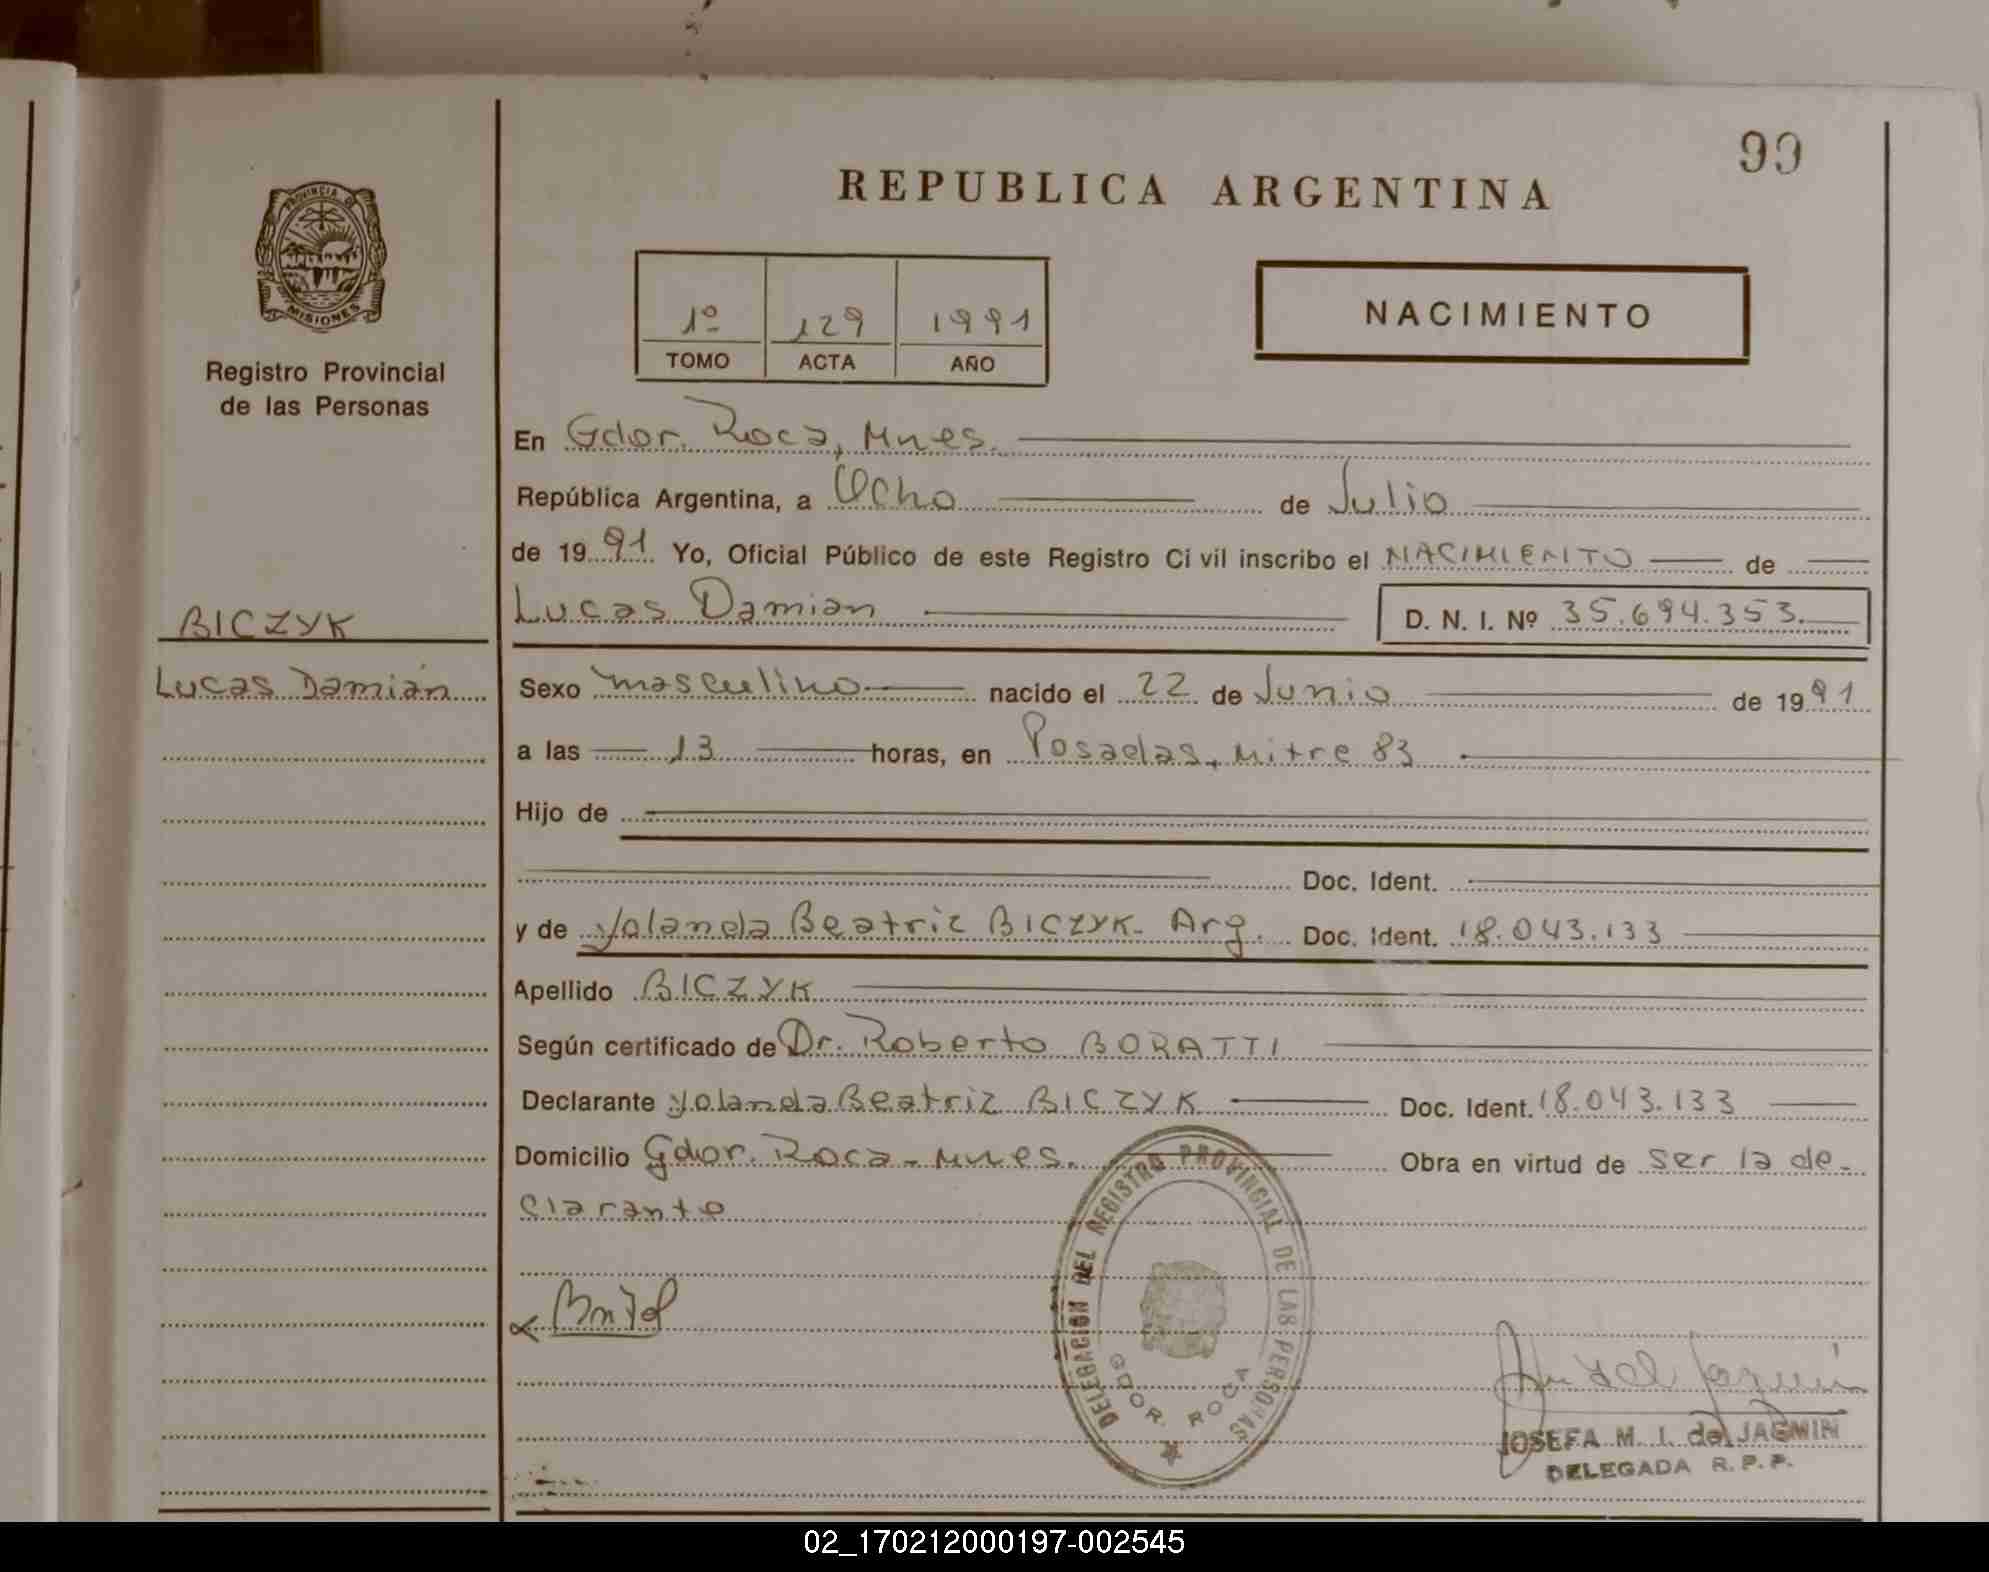 99
REPUBLICA ARGENTINA
PROVINCIA DE
MISIONES
Registro Provincial
de las Personas
1º 129 1991
TOMO ACTA AÑO
NACIMIENTO
En Gdor. Roca, Mnes.
República Argentina, a Ocho de Julio
de 1991 Yo, Oficial Público de este Registro Civil inscribo el NACIMIENTO de
Lucas Damian D. N. I. Nº 35.694.353.
BICZYK
Lucas Damián
Sexo masculino nacido el 22 de Junio de 1991
a las 13 horas, en Posadas, Mitre 83
Hijo de
Doc. Ident.
y de Yolanda Beatriz BICZYK. Arg. Doc. Ident. 18.043.133
Apellido BICZYK
Según certificado de Dr. Roberto BORATTI
Declarante Yolanda Beatriz BICZYK Doc. Ident. 18.043.133
Domicilio Gdor. Roca - Mnes. Obra en virtud de ser la de-
clarante
DELEGACIÓN DEL REGISTRO PROVINCIAL DE LAS PERSONAS
GDOR. ROCA
JOSEFA M. I. de JAEMIN
DELEGADA R. P. P.
02_170212000197-002545